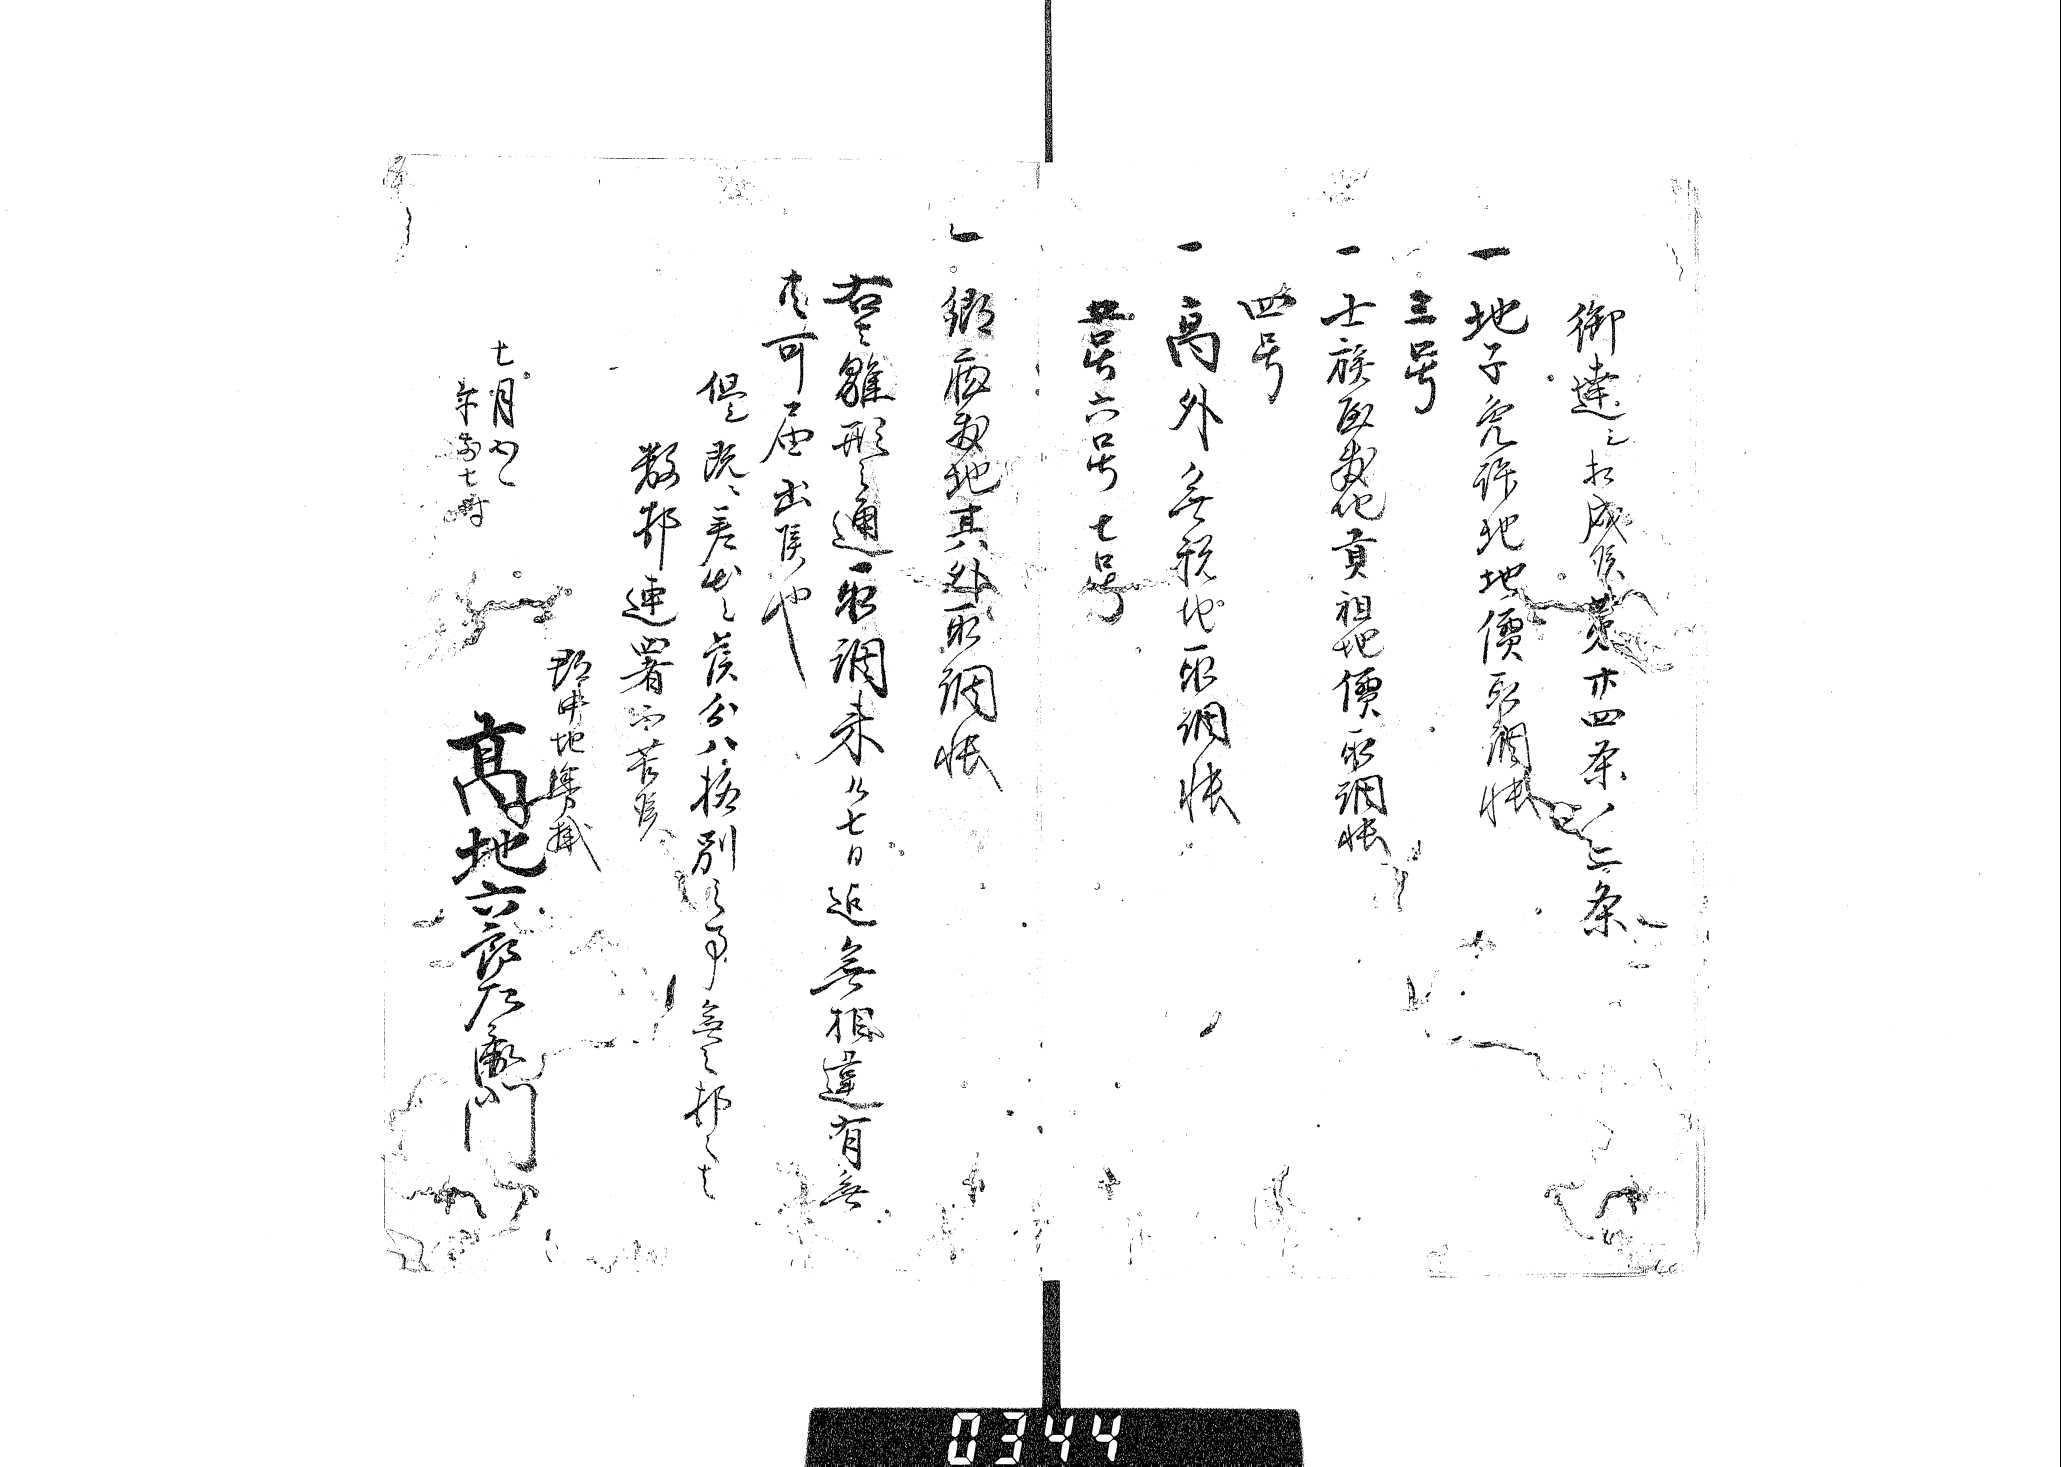 御達之相成候 第廿四条ノ二条
一 地子免許地地價取調帳
三号
一 士族屋敷地貢租地價取調帳
四号
一 高外無税地取調帳
五号六号七号
一 郷蔵敷地其外取調帳
右之雛形之通取調来ル七日迄無相違有無
共可届出候也
但既ニ差出之候分ハ格別之事無之村々は
数村連署不苦候
七月
午前七時
郡中地券掛
高地六郎左衛門
0344